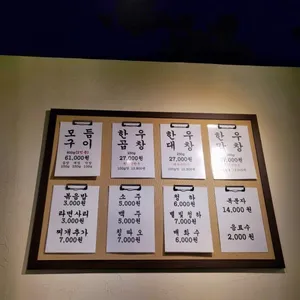 모듬
구이
61,000원
한우
곱창
27,000원
한우
대창
27,000원
한우
27,000원
볶음밥
3,000원
라면사리
3,000원
찌개추가
7,000원
소주
5,000원
맥주
5,000원
칭따오
7,000원
청하
6,000원
별빛청하
7,000원
매화수
6,000원
복분자
14,000원
음료수
2,000원